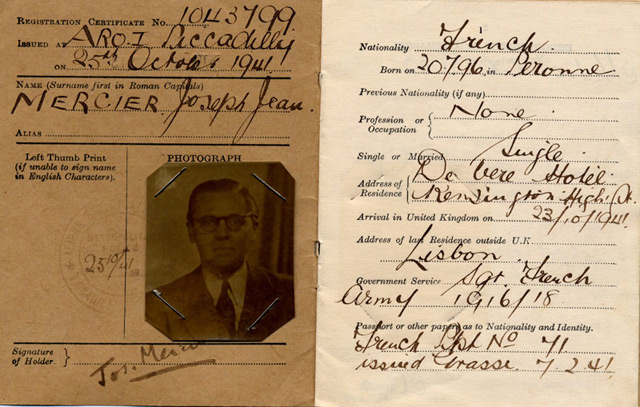 REGISTRATION CERTIFICATE No. 1043799
ISSUED AT AROI Piccadilly
ON 25th October 1941
NAME (Surname first in Roman Capitals)
MERCIER Joseph Jean.
ALIAS
Left Thumb Print
(if unable to sign name
in English Characters).
PHOTOGRAPH
25/10/41
Signature
of Holder.
Jos. Mercier
Nationality French
Born on 20.7.96 in Peronne
Previous Nationality (if any)
None
Profession or
Occupation
Single or Married Single
Address of
Residence
De Vere Hotel
Kensington High St.
Arrival in United Kingdom on 23/10/1941
Address of last Residence outside U.K.
Lisbon
Government Service Sgt. French
Army 1916/18
Passport or other papers as to Nationality and Identity.
French Ppt No 71
issued Grasse 7.2.41